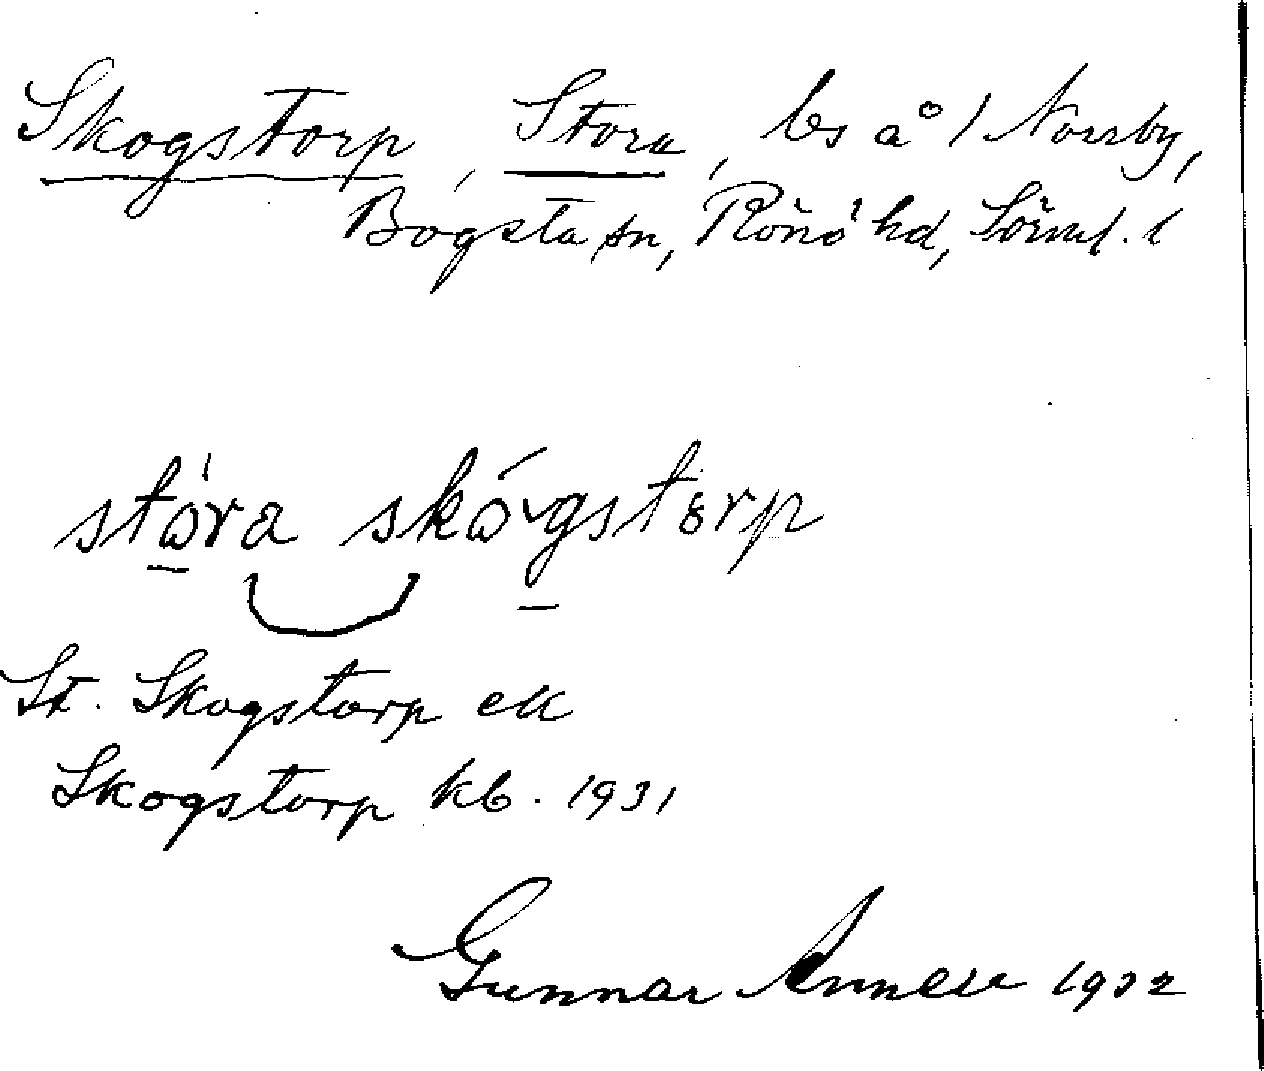 Skogstorp, Stora, ls å 1 Norrby,
Bogsta sn, Rönö hd, Sörml. l
stóra skógstorp
St. Skogstorp ek
Skogstorp kb. 1931
Gunnar 1932